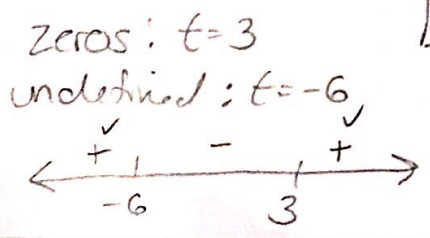 zeros: t=3
undefined: t=-6
✓ ✓
+ - +
-6 3